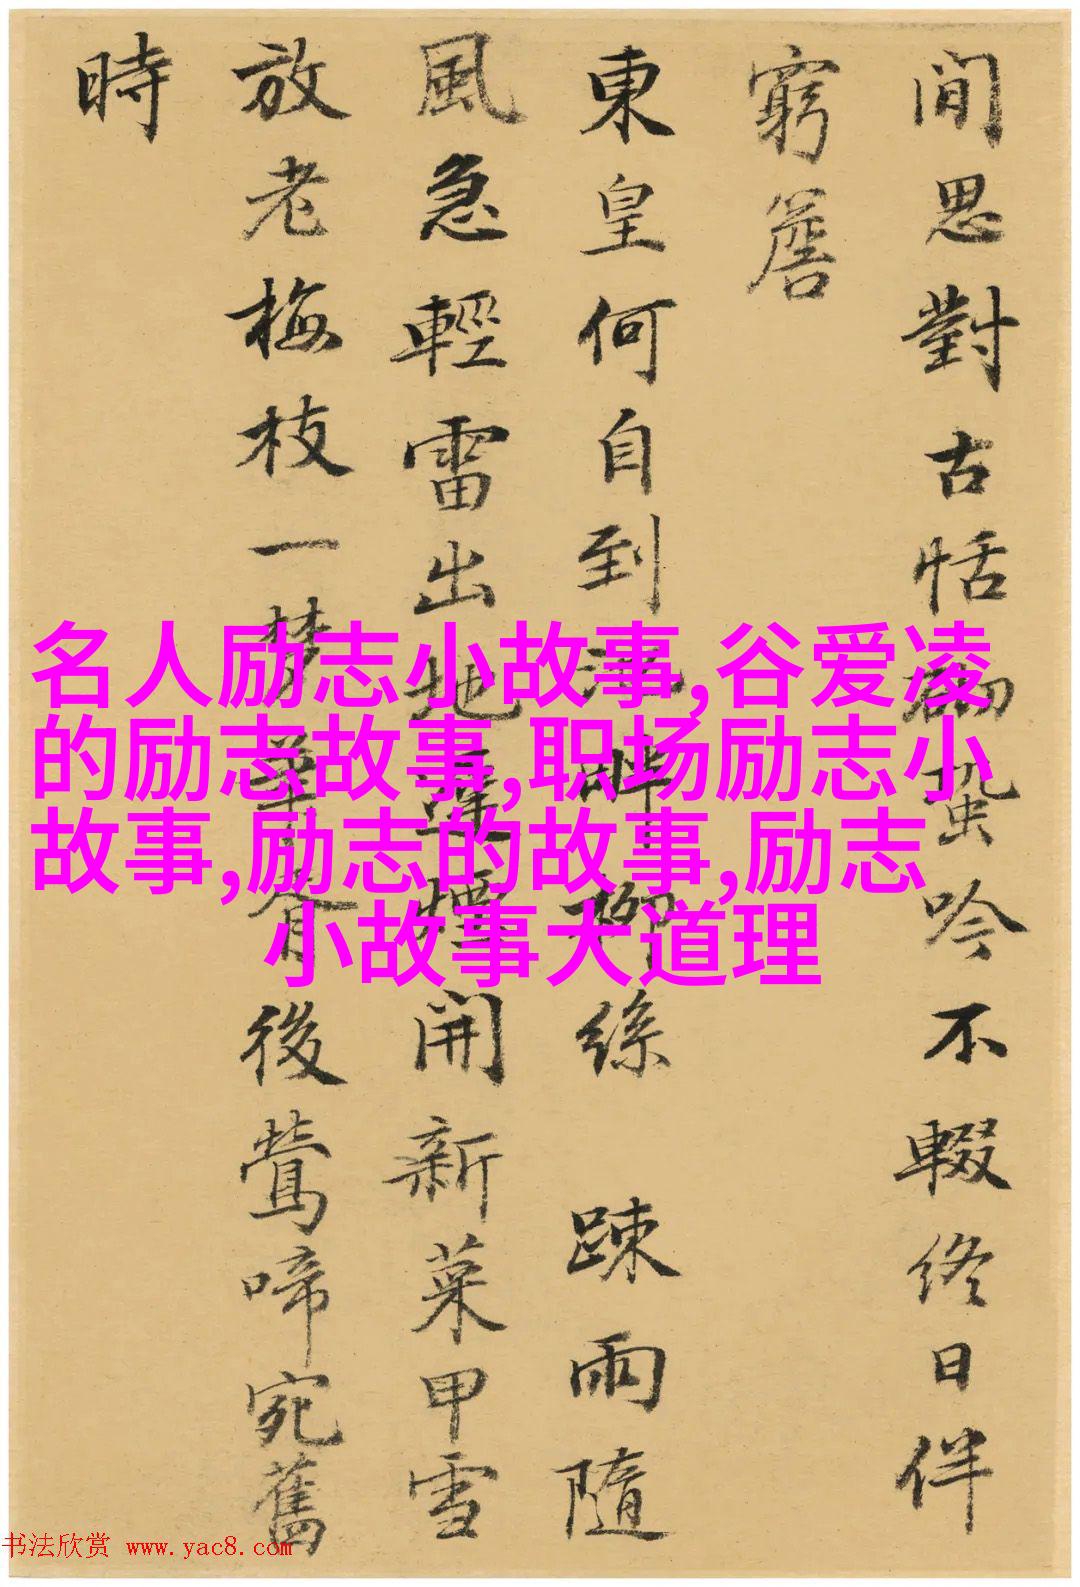 閒思對古恬蛩吟不輟終日伴
窮簷
東皇何自到池畔柳絲踈雨隨
風急輕雷出地遲煙開新菜甲雪
放老梅枝一梦華胥後鶯啼宛舊
時
名人励志小故事,谷爱凌
的励志故事,职场励志小
故事,励志的故事,励志
小故事大道理
书法欣赏 www.yac8.com